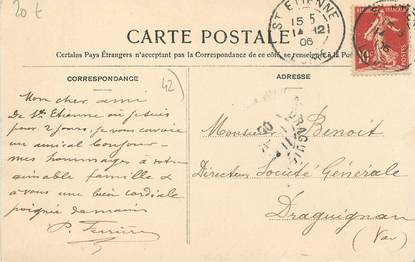 20 €
ST ETIENNE
15 5
14 12
06
LOIRE
CARTE POSTALE
Certains Pays Étrangers n'acceptant pas la Correspondance de ce côté, se renseigner à la Pos
CORRESPONDANCE
ADRESSE
42
Mon cher ami
De St Etienne où je suis
pour 2 jours je vous envoie
un amical bonjour —
mes hommages à votre
aimable famille &
à vous une bien cordiale
poignée de mains
P. Ferrière
DRAGUIGNAN
Monsieur Benoit
Directeur Société Générale
Draguignan
(Var)